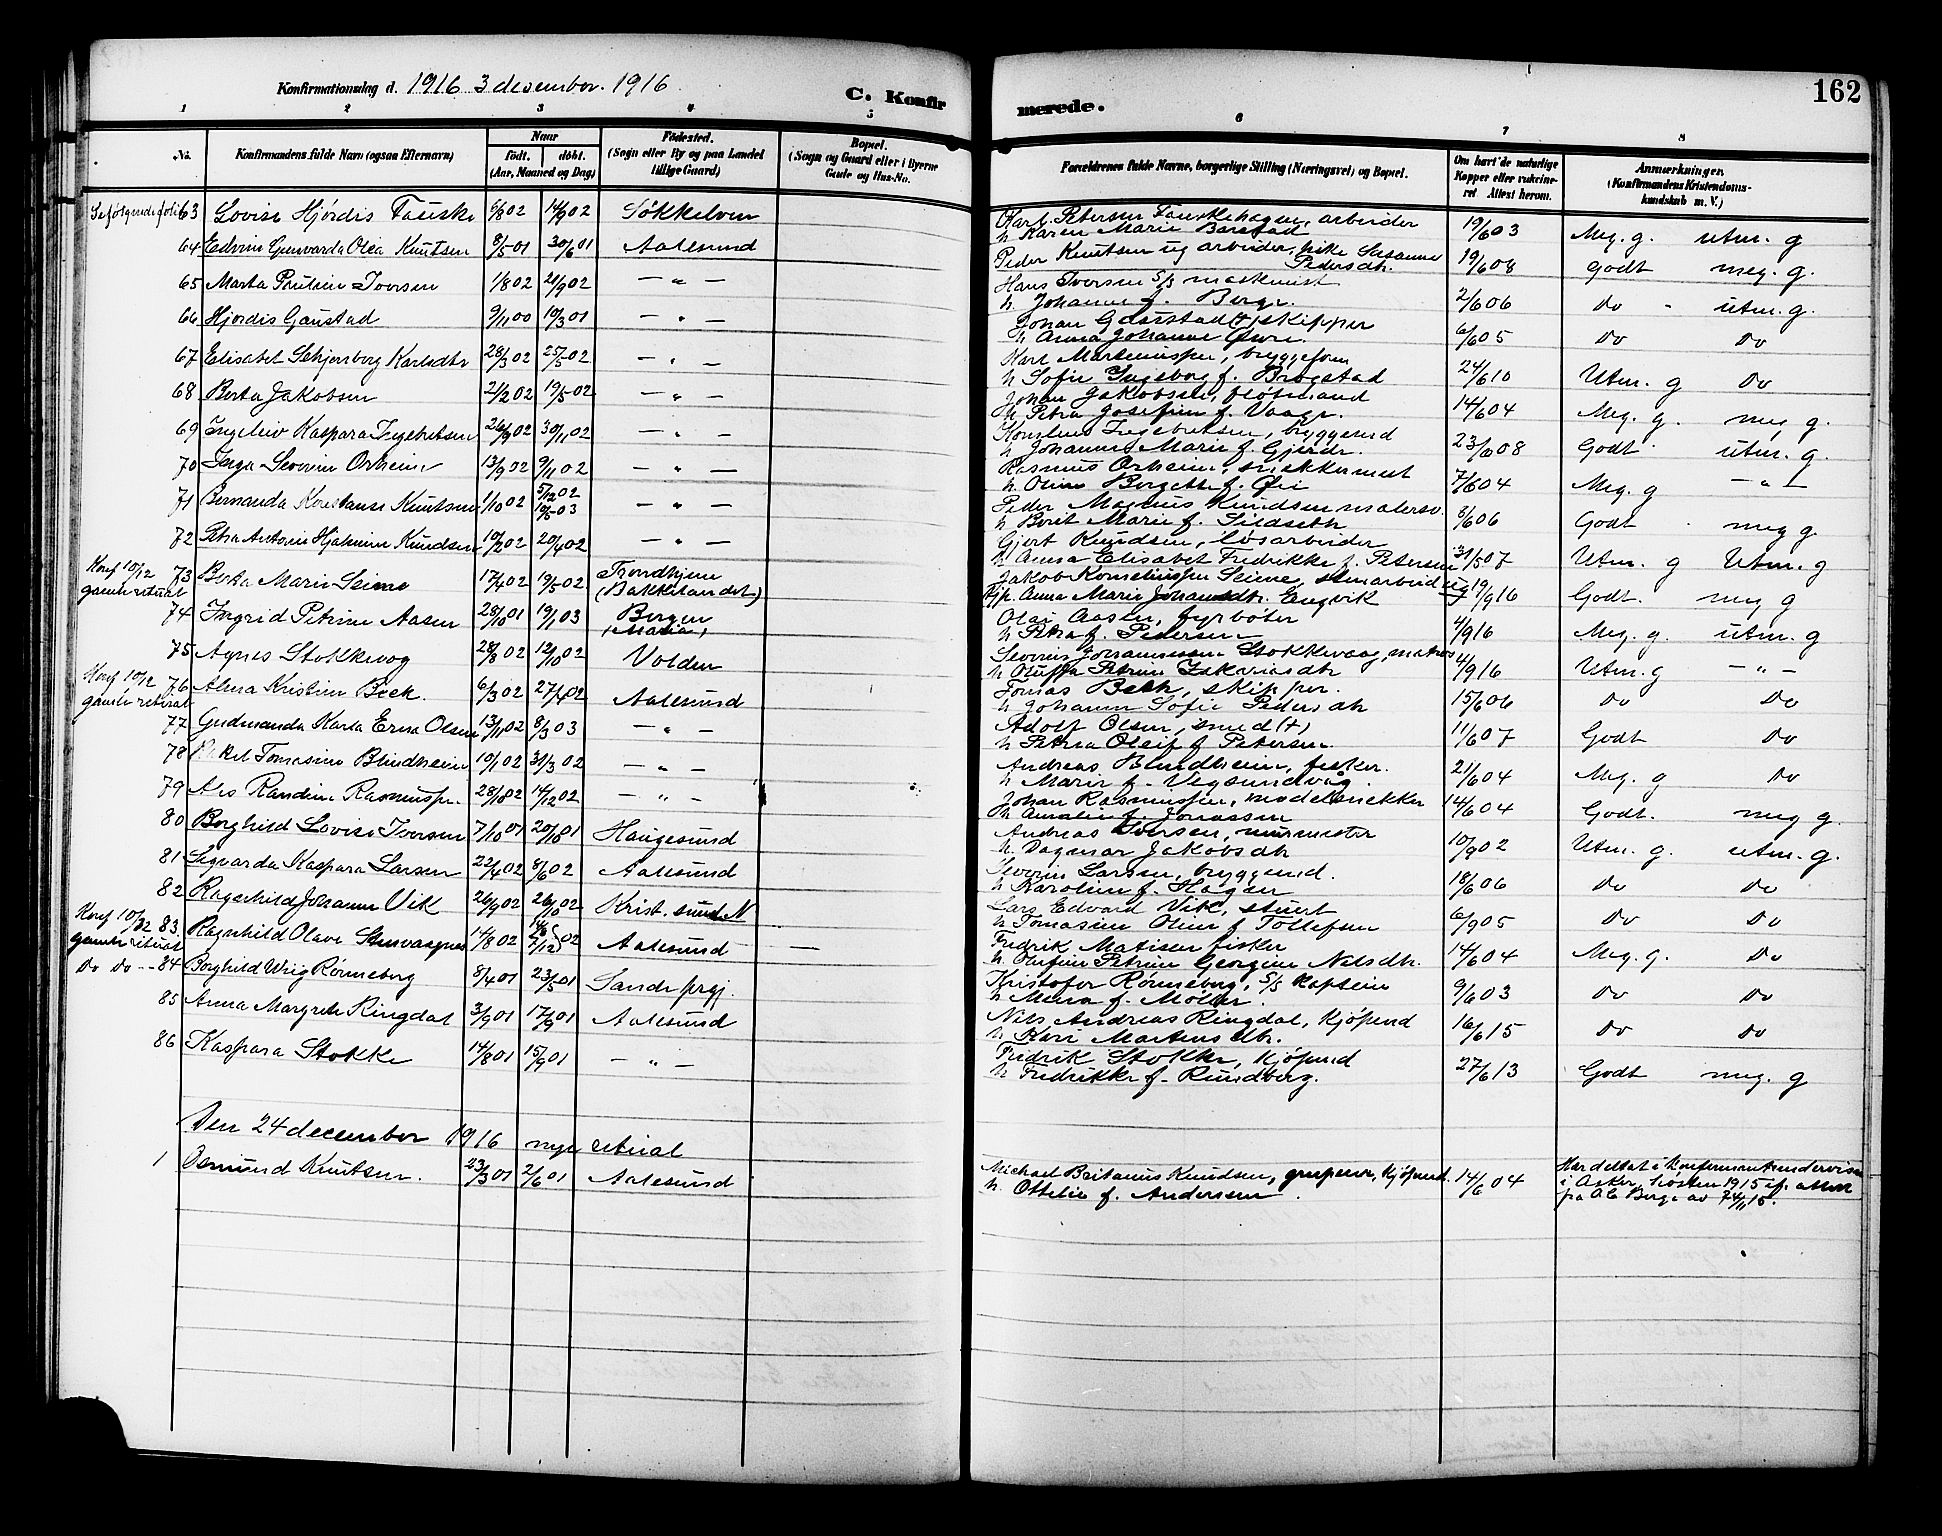 Konfirmationsdag d. 1916 3 desember. 1916.
C. Konfirmerede.
162
1 2 3 4 5 6 7 8
No. Konfirmandens fulde Navn (ogsaa Efternavn) Naar født. døbt. (Aar, Maaned og Dag) Fødested. (Sogn eller By og paa Landet tillige Gaard) Bopæl. (Sogn og Gaard eller i Byerne Gade og Hus-No. Forældrenes fulde Navne, borgerlige Stilling (Næringsvei) og Bopæl. Om havt de naturlige Kopper eller vakcineret. Attest herom. Anmærkninger. (Konfirmandens Kristendomskundskab m. V.)
63 Lovise Hjördis Fauske 6/8 02 14/9 02 Søkkelven Karl Petersen Fauskehagen, arbeider 19/6 03 Meg. g. utm. g
h Karen Marie Barstad
64 Edvin Gunvarda Olea Knutsen 8/5 01 30/6 01 Aalesund Peder Knutsen ug arbeider, pike Susanne Pedersdtr. 19/6 08 Godt meg. g.
65 Marta Pauline Iversen 1/8 02 21/9 02 — " — Hans Iversen S/S maskinist 2/6 06 do utm. g.
h. Johanne f. Berge.
66 Hjördis Gaustad 9/11 00 10/3 01 — " — Johan Gaustad (+) skipper 6/6 05 do do
h Anna Johanne Øvre.
67 Elisabet Schjersborg Karlsdtr 28/3 02 25/5 02 — " — Karl Martinussen, bryggeform 24/6 10 Utm. g do
h Sofie Ingeborg f. Brogstad
68 Berta Jakobsen 21/2 02 19/5 02 — " — Johan Jakobsen, fløtmand 14/6 04 Meg. g. meg g.
h Petra Josefine f. Vaage.
69 Ingeleiv Kaspara Ingebretsen 26/9 02 30/11 02 — " — Kornelius Ingebretsen, bryggemd 23/6 08 Godt utm. g.
h Johanne Marie f. Gjerde.
70 Inga Severine Orheim 13/9 02 9/11 02 — " — Rasmus Orheim, snekkermest 7/6 04 Meg. g — " —
h Oline Bergette f. Øie
71 Bernanda Konstanse Knutsen 1/10 02 5/12 02 10/5 03 — " — Peder Magnus Knudsen malersv. 8/6 06 Godt meg g
h Berit Marie f. Sildseth
72 Petra Antonie Hjalmine Knudsen 10/2 02 20/4 02 — " — Gjert Knudsen, løsarbeider 31/5 07 Utm. g Utm. g
h Anna Elisabet Fredrikke f. Petersen
Konf 10/12 gamle ritual 73 Berta Marie Seime 17/4 02 19/5 02 Trondhjem (Bakkelandet) Jakob Korneliussen Seime, stenarbeider ug 19/9 16 Godt. meg g
Pjp. Anna Marie Johansdtr. Engvik
74 Ingrid Petrine Aasen 28/10 01 19/1 03 Bergen (Maria) Olai Aasen, fyrbøter 4/9 16 Meg. g. utm. g
h Petra f. Pedersen
75 Agnes Stokkevag 28/8 02 12/10 02 Volden Severin Johannessen Stokkevaag, matros 4/9 16 Utm. g — " —
h Oluffa Petrine
Konf 10/12 gamle ritual 76 Alma Kristine Beck. 6/3 02 27/4 02 Aalesund Tomas Beck, skipper. 15/6 06 do do
h Johanne Sofie Pedersdtr
77 Gudmanda Karla Erna Olsen 13/11 02 8/3 03 — " — Adolf Olsen, smed (+) 11/6 07 Godt do
h Petrea Oleif f Petersen.
78 Rakel Tomasine Blindheim 10/1 02 31/3 02 — " — Andreas Blindheim, fisker. 21/6 04 Meg. g do
h Marie f. Vegsundvåg
79 Als Randine Rasmussen. 28/10 02 14/12 02 — " — Johan Rasmussen, modelsnekker 14/6 04 Godt. meg g.
h Amalie f. Jonassen
80 Borghild Lovise Iversen 7/10 01 20/10 01 Haugesund Andreas Iversen, murmester 10/9 02 Utm. g. utm. g.
h. Dagmar Jakobsdtr
81 Sigvarda Kaspara Larsen 22/4 02 8/6 02 Aalesund Severin Larsen, bryggemd. 18/6 06 do do
h Karoline f. Hagen
82 Ragnhild Johanne Vik 26/9 02 26/10 02 Krist.sund N Lars Edvard Vik, stuert 6/9 05 do do
h Tomasine Oline f Tollefsen
Konf 10/12 gamle ritual 83. Ragnhild Olave Stusvagnes 14/8 02 Aalesund — Fredrik Matisen fisker 14/6 04 Meg. g. do
h. Olufine Petrine Georgine Nilsdtr.
do do -- 84 Borghild Wiig Rønneberg 8/4 01 23/5 01 Sande prgj. Kristofer Rønneberg, S/S kaptein 9/6 03 do do
h Mina f. Møller.
85 Anna Margrete Ringdal 3/9 01 17/9 01 Aalesund Nils Andreas Ringdal, kjøpmd 16/6 15 do do
h Kari Martinsdtr.
86 Kaspara Stokke 14/8 01 15/9 01 — " — Fredrik Stokke, kjøpmd 27/6 13 Godt meg. g
h Fredrikke f. Rundberg.
Den 24 december 1916 nye ritual
1 Osmund Knutsen. 23/3 01 2/6 01 Aalesund Michael Britanus Knudsen, kjøpmd. 14/6 04 Har deltat i konfirmantundervisn
h. Ottilie f. Anderssen. i Asker, høsten 1915 if. attest
fra Ole Berge av 24/11 15.